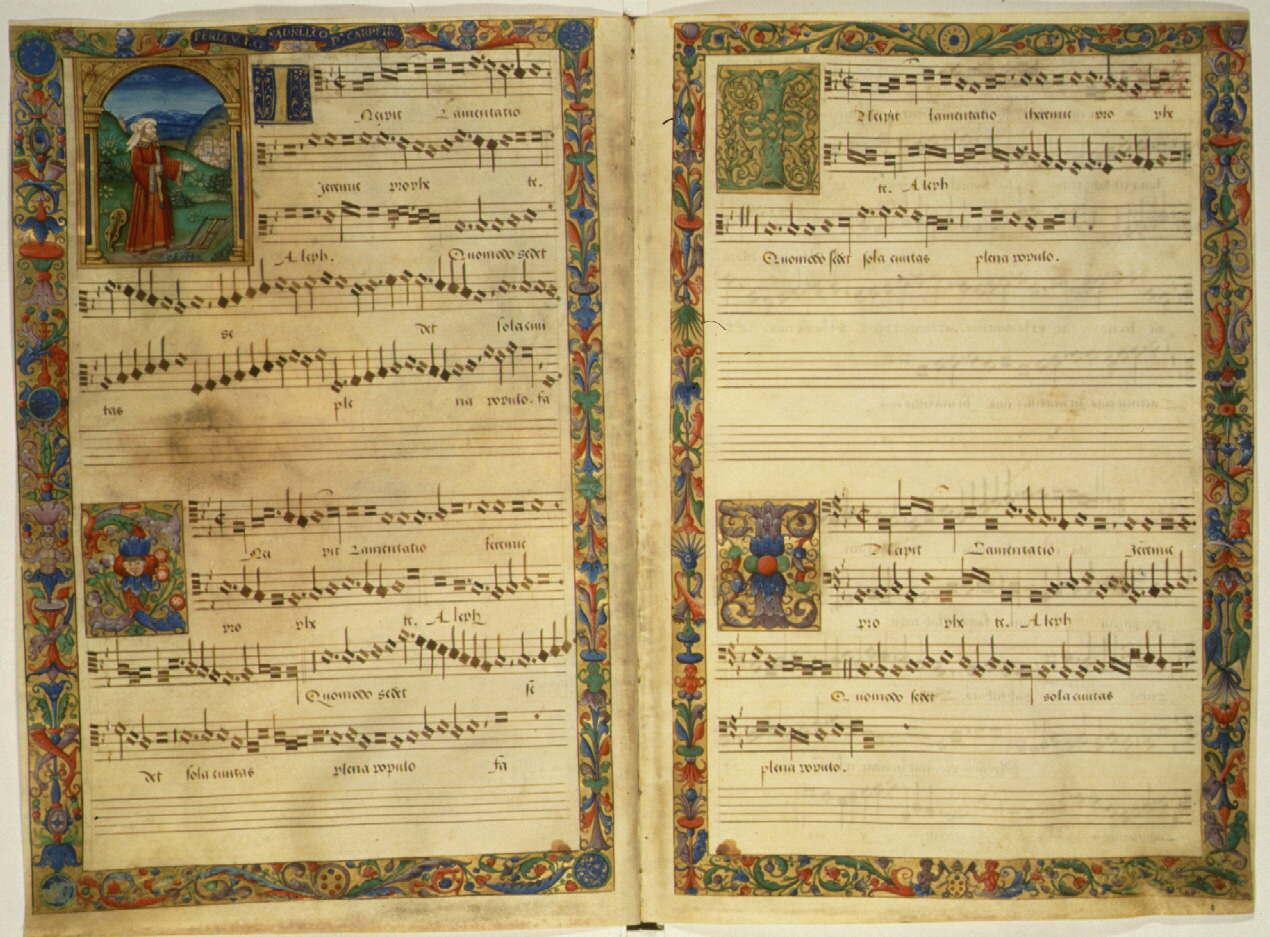 FERIA V. I. C. MADRIALO D. CARPETR
Ncipit Lamentatio
Jeremie prophe te.
Aleph. Quomodo sedet
se det sola ciui
tas ple na populo. fa
Nci pit Lamentatio Jeremie
pro phe te. Aleph
Quomodo sedet se
det sola ciuitas plena populo fa
Ncipit lamentatio iheremie pro phe
te. Aleph
Quomodo sedet sola ciuitas plena populo.
Ncipit Lamentatio Jeremie
pro phe te. Aleph
Quomodo sedet sola ciuitas
plena populo.